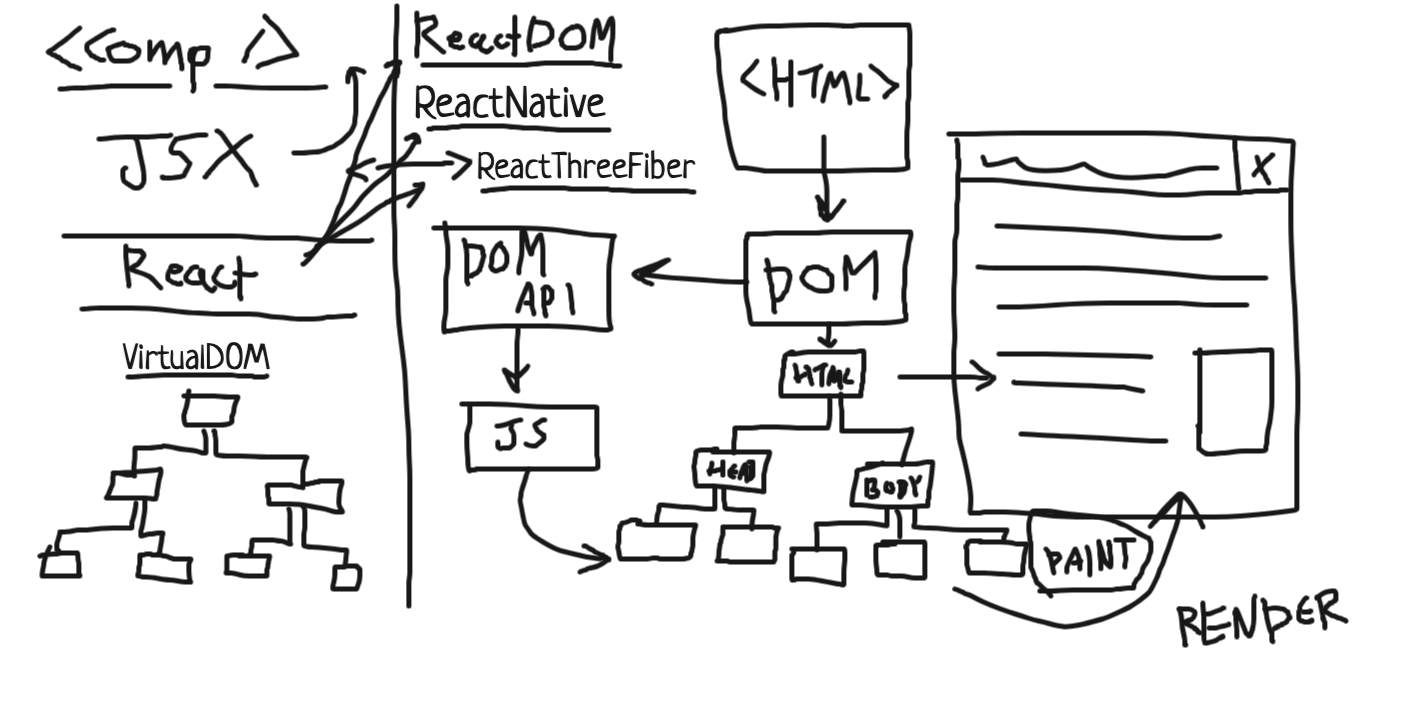 <Comp />
JSX
React
VirtualDOM
ReactDOM
ReactNative
ReactThreeFiber
DOM
API
JS
<HTML>
DOM
HTML
HEAD
BODY
X
PAINT
RENDER